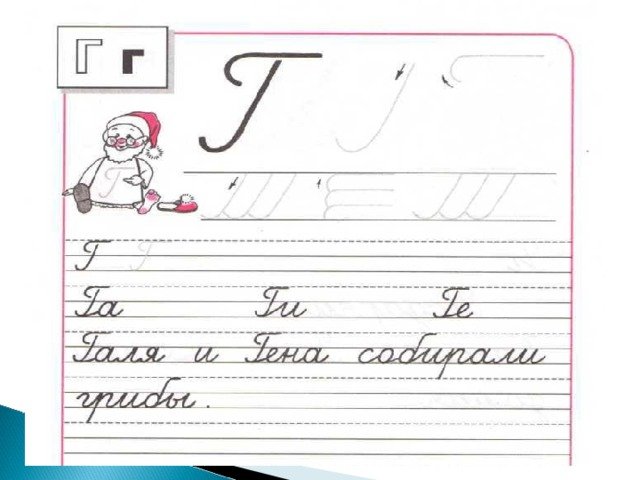 Г г
Г
Г
Г Г
Га Ги Ге
Галя и Гена собирали
грибы.